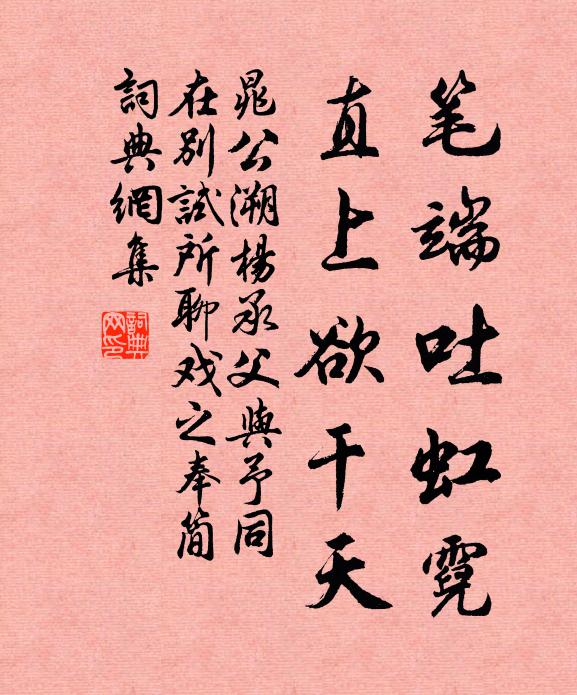 笔端吐虹霓
直上欲干天
晁公溯楊承父與予同
在別試所聊戏之奉簡
詞典網集
詞典
网印